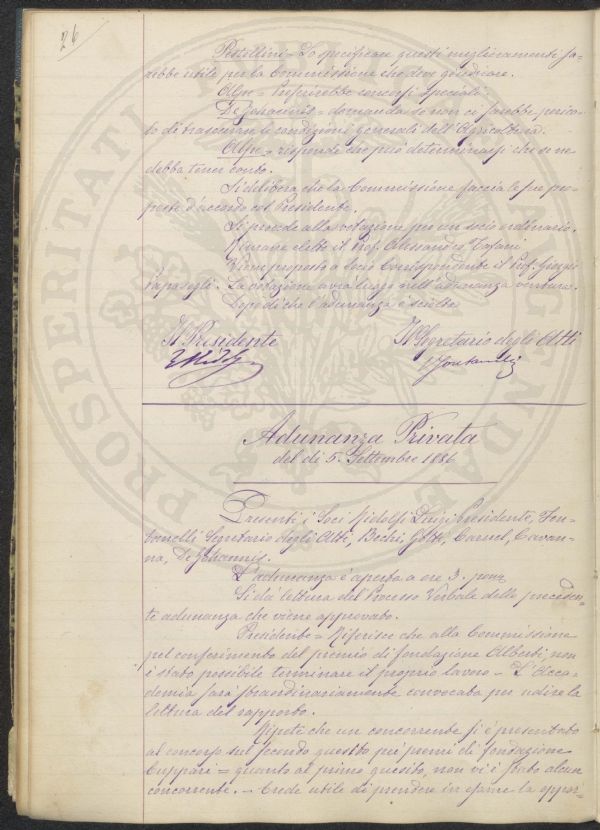 26
Pestellini = Lo specificare questi miglioramenti sa-
rebbe utile per la Commissione che deve giudicare.
Alpe = Preferirebbe concorsi speciali.
De Johannis = domanda se non ci sarebbe perico-
lo di trascurare le condizioni generali dell'Agricoltura.
Alpe = risponde che può determinarsi che se ne
debba tener conto.
Si delibera che la Commissione faccia le sue pro
poste d'accordo col Presidente.
Si procede alla votazione per un socio ordinario.
Rimane eletto il Prof. Alessandro
Viene proposto a Socio Corrispondente il Prof. Giorgio
Papasogli. La votazione avrà luogo nell'adunanza ventura.
Dopodiché l'adunanza è sciolta
Il Presidente
Il Segretario degli Atti
Adunanza Privata
del dì 5. Settembre 1886
Presenti i Soci Ridolfi Luigi Presidente, Fon-
tanelli Segretario degli Atti, Bechi, Gotti, Caruel, Cavan-
na, De Johannis.
L'adunanza è aperta a ore 3. pom
Si dà lettura del Processo Verbale della preceden-
te adunanza che viene approvato.
Presidente = Riferisce che alla Commissione
pel conferimento del premio di fondazione Alberti, non
è stato possibile terminare il proprio lavoro - L'Acca-
demia sarà straordinariamente convocata per udire la
lettura del rapporto.
Ripete che un concorrente si è presentato
al concorso sul secondo quesito pei premi di fondazione
Cuppari = quanto al primo quesito, non vi è stato alcun
concorrente. - Crede utile di prendere in esame la oppor-
PROSPERITATI AUGENDAE